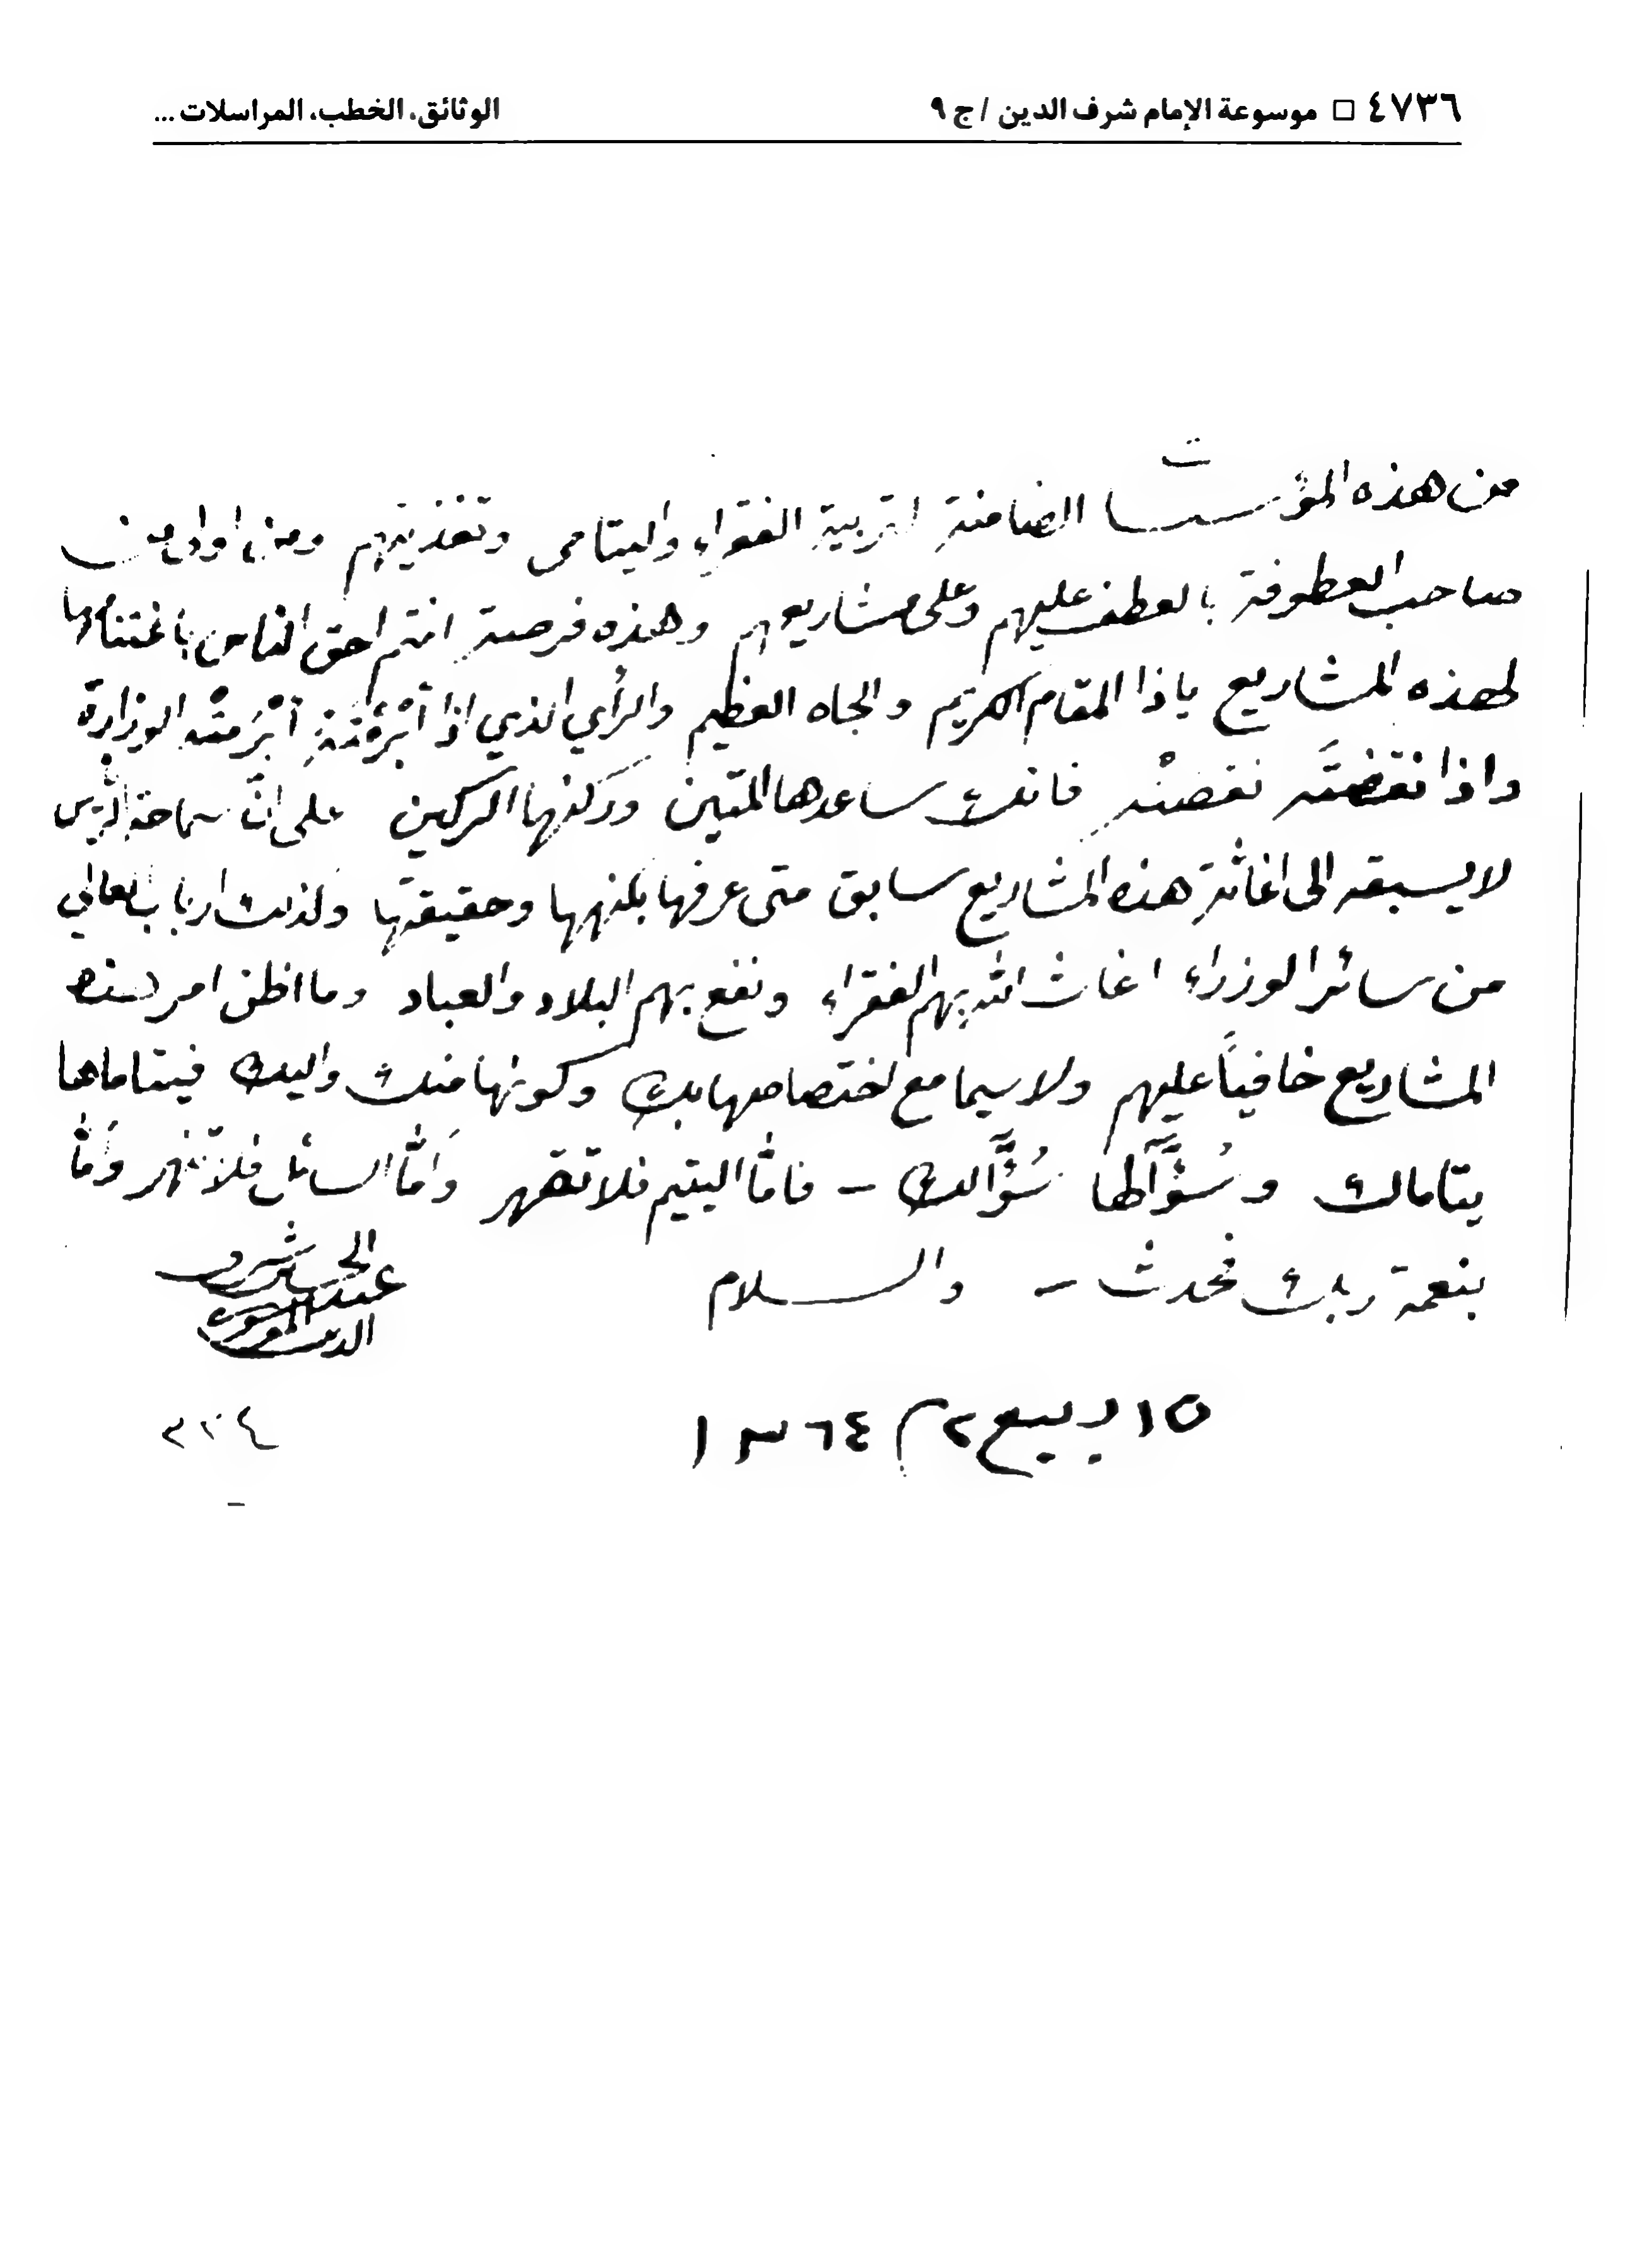 ٤٧٣٦ □ موسوعة الإمام شرف الدين / ج ٩
الوثائق، الخطب، المراسلات ...
من هذه المؤسسات الضامنة لتربية الفقراء واليتامى وتغذيتهم ومن اولى من
صاحب العطوفة بالعطف عليهم وعلى مشاريعهم وهذه فرصة انتم احق الناس باغتنامها
لهذه المشاريع ياذا المقام الكريم والجاه العظيم والرأي الذي اذا أَبْرَمْتَهُ أَبْرَمَتْه الوزارة
واذا نقضتَه نقضتْه فانك ساعدها المتين وركنها الركين على انَّ سماحة الرئيس
لا يسبقه الى اغاثة هذه المشاريع سابق متى عرفها بكنهها وحقيقتها وكذلك ارباب المعالي
من سائر الوزراء اغاث الله بهم الفقراء ونفع بهم البلاد والعباد وما اظن امر هذه
المشاريع خافياً عليهم ولا سيما مع اختصاصها بك وكونها منك واليك فيتاماها
يتاماك وسُؤَّالها سُؤَّالك – فامّا اليتيم فلا تقهر وَامّا السائل فلا تنهر وَامّا
بنعمة ربك فحدث – والسلام
عبد الحسين شرف
الدين الموسوي
١٥ ربيع ٢ م ١٣٦٤